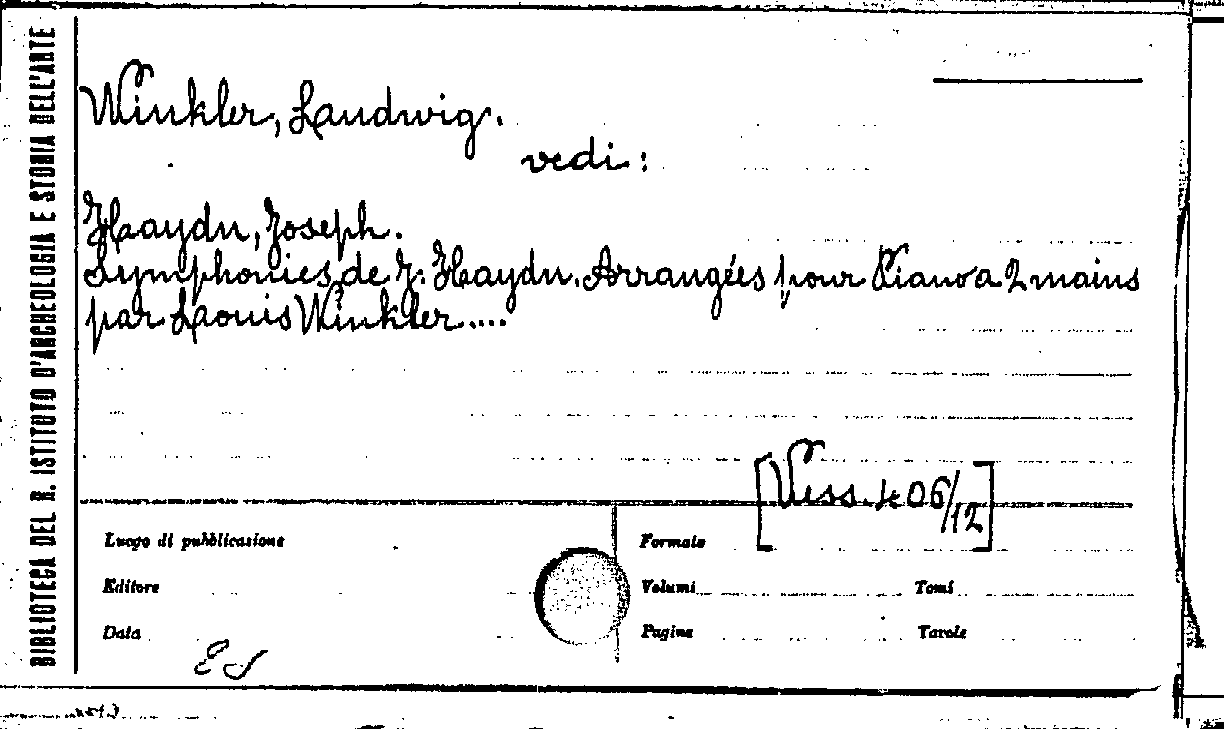 BIBLIOTECA DEL R. ISTITUTO D'ARCHEOLOGIA E STORIA DELL'ARTE
Winkler, Laudwig.
vedi:
Haydn, Joseph.
Symphonies de J. Haydn. Arrangées pour Piano a 2 mains
par Laouis Winkler....
[Vess. 406/12]
Luogo di pubblicazione
Formato
Editore
Volumi
Tomi
Data
Pagine
Tavole